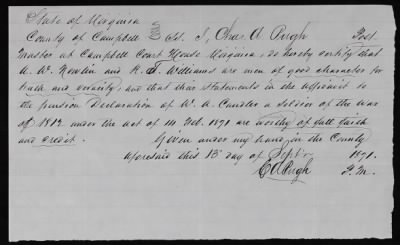 State of Virginia
County of Campbell Sct. I, Chas. A Pugh Post
Master at Campbell Court House Virginia, do hereby certify that
A. W. Nowlin and R. A. Williams are men of good character for
truth and veracity, and that their statements in the affidavit to
the pension Declaration of W. A. Candler a soldier of the war
of 1812 under the act of 14 Feb. 1871 are worthy of full faith
and credit. Given under my hand in the County
aforesaid this 13 day of Sept. 1871.
C A Pugh P. M.